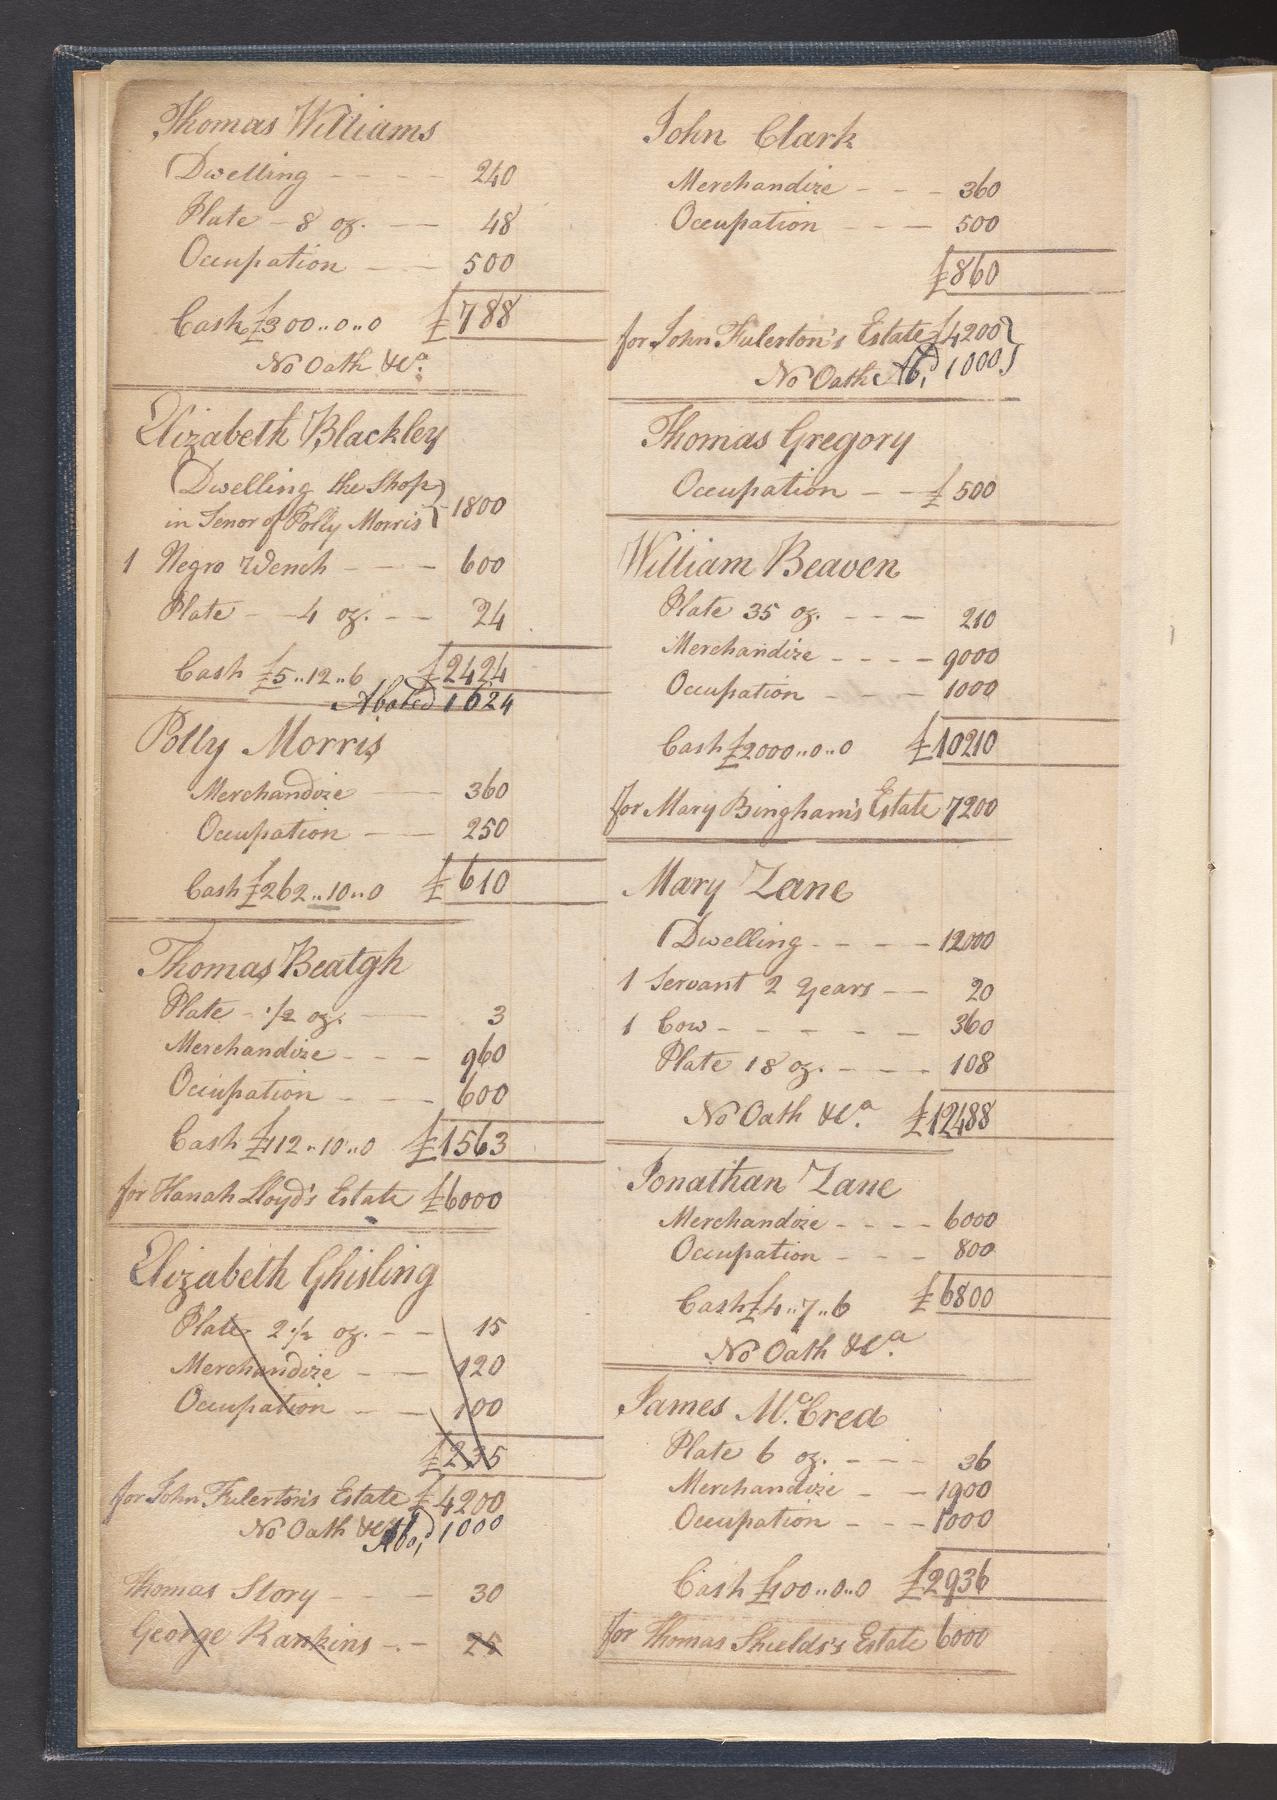 Thomas Williams
Dwelling - - - - 240
Plate - 8 oz. - - 48
Occupation - - 500
Cash £300..0..0 £788
No Oath &ca.
Elizabeth Blackley
Dwelling the Shop
in Tenor of Polly Morris } 1800
1 Negro Wench - - - 600
Plate - 4 oz. - - 24
Cash £5..12..6 £2424
Abated 1624
Polly Morris
Merchandize - - 360
Occupation - - 250
Cash £262..10..0 £610
Thomas Beatgh
Plate - 1/2 oz. - - 3
Merchandize - - - 960
Occupation - - - 600
Cash £112..10..0 £1563
for Hanah Lloyd's Estate £6000
Elizabeth Ghisling
Plate 2 1/2 oz. - - 15
Merchandize - - 120
Occupation - - 100
£235
for John Fulerton's Estate £4200
No Oath &ca Abd. 1000
Thomas Story - - - 30
George Rankins - . - 25
John Clark
Merchandize - - - 360
Occupation - - - 500
£860
for John Fulerton's Estate £4200 }
No Oath Abd. 1000 }
Thomas Gregory
Occupation - - £500
William Beaven
Plate 35 oz. - - - 210
Merchandize - - - - 9000
Occupation - - - 1000
Cash £2000..0..0 £10210
for Mary Bingham's Estate 7200
Mary Zane
Dwelling - - - - 12000
1 Servant 2 Years - - 20
1 Cow - - - - - - 360
Plate 18 oz. - - - - 108
No Oath &ca. £12488
Jonathan Zane
Merchandize - - - - 6000
Occupation - - - 800
Cash £4..7..6 £6800
No Oath &ca.
James McCrea
Plate 6 oz. - - - 36
Merchandize - - 1900
Occupation - - - 1000
Cash £100..0..0 £2936
for Thomas Shields's Estate 6000